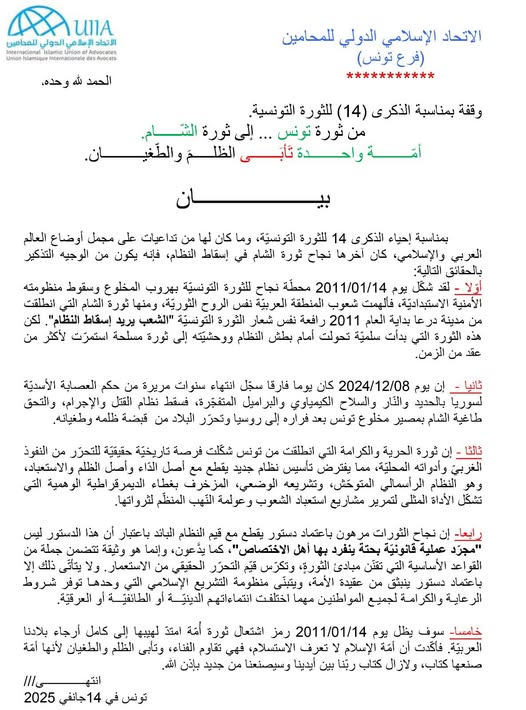 UIIA
الاتحاد الإسلامي الدولي للمحامين
International Islamic Union of Advocates
Union Islamique Internationale des Avocats
الاتحاد الإسلامي الدولي للمحامين
(فرع تونس)
***********
الحمد لله وحده،
وقفة بمناسبة الذكرى (14) للثورة التونسية.
من ثورة تونس ... إلى ثورة الشّـــام.
أمّــــة واحــــدة تَأبَـــى الظلــمَ والطّغيـــان.
بيــــــــــــان
بمناسبة إحياء الذكرى 14 للثورة التونسيّة، وما كان لها من تداعيات على مجمل أوضاع العالم
العربي والإسلامي، كان آخرها نجاح ثورة الشام في إسقاط النظام، فإنه يكون من الوجيه التذكير
بالحقائق التالية:
أوّلا - لقد شكّل يوم 2011/01/14 محطّة نجاح للثورة التونسية بهروب المخلوع وسقوط منظومته
الأمنية الاستبداديّة، فألهمت شعوب المنطقة العربيّة نفس الروح الثوريّة، ومنها ثورة الشام التي انطلقت
من مدينة درعا بداية العام 2011 رافعة نفس شعار الثورة التونسيّة "الشعب يريد إسقاط النظام". لكن
هذه الثورة التي بدأت سلميّة تحولت أمام بطش النظام ووحشيّته إلى ثورة مسلحة استمرّت لأكثر من
عقد من الزمن.
ثانيا - إن يوم 2024/12/08 كان يوما فارقا سجّل انتهاء سنوات مريرة من حكم العصابة الأسديّة
لسوريا بالحديد والنّار والسلاح الكيمياوي والبراميل المتفجّرة، فسقط نظام القتل والإجرام، والتحق
طاغية الشام بمصير مخلوع تونس بعد فراره إلى روسيا وتحرر البلاد من قبضة ظلمه وطغيانه.
ثالثا - إن ثورة الحرية والكرامة التي انطلقت من تونس شكّلت فرصة تاريخيّة حقيقيّة للتحرّر من النفوذ
الغربيّ وأدواته المحليّة، مما يفترض تأسيس نظام جديد يقطع مع أصل الدّاء وأصل الظلم والاستعباد،
وهو النظام الرأسمالي المتوحّش، وتشريعه الوضعي، المزخرف بغطاء الديمقراطية الوهمية التي
تشكّل الأداة المثلى لتمرير مشاريع استعباد الشعوب وعولمة النّهب المنظّم لثرواتها.
رابعا- إن نجاح الثورات مرهون باعتماد دستور يقطع مع قيم النظام البائد باعتبار أن هذا الدستور ليس
"مجرّد عملية قانونيّة بحتة ينفرد بها أهل الاختصاص"، كما يدّعون، وإنما هو وثيقة تتضمن جملة من
القواعد الأساسية التي تقنّن مبادئ الثورة، وتكرّس قيّم التحرر الحقيقي من الاستعمار. ولا يتأتّى ذلك إلا
باعتماد دستور ينبثق من عقيدة الأمة، ويتبنّى منظومة التشريع الإسلامي التي وحدهـا توفر شـروط
الرعايـة والكرامة لجميـع المواطنيـن مهما اختلفـت انتماءاتهـم الدينيّـة أو الطائفيّـة أو العرقيّة.
خامسا- سوف يظل يوم 2011/01/14 رمز اشتعال ثورة أُمة امتدّ لهيبها إلى كامل أرجاء بلادنا
العربيّة. فأكّدت أن أمّة الإسلام لا تعرف الاستسلام، فهي تقاوم الفناء، وتأبى الظلم والطغيان لأنها أمة
صنعها كتاب، ولازال كتاب ربّنا بين أيدينا وسيصنعنا من جديد بإذن الله.
انتهــــــى///
تونس في 14جانفي 2025